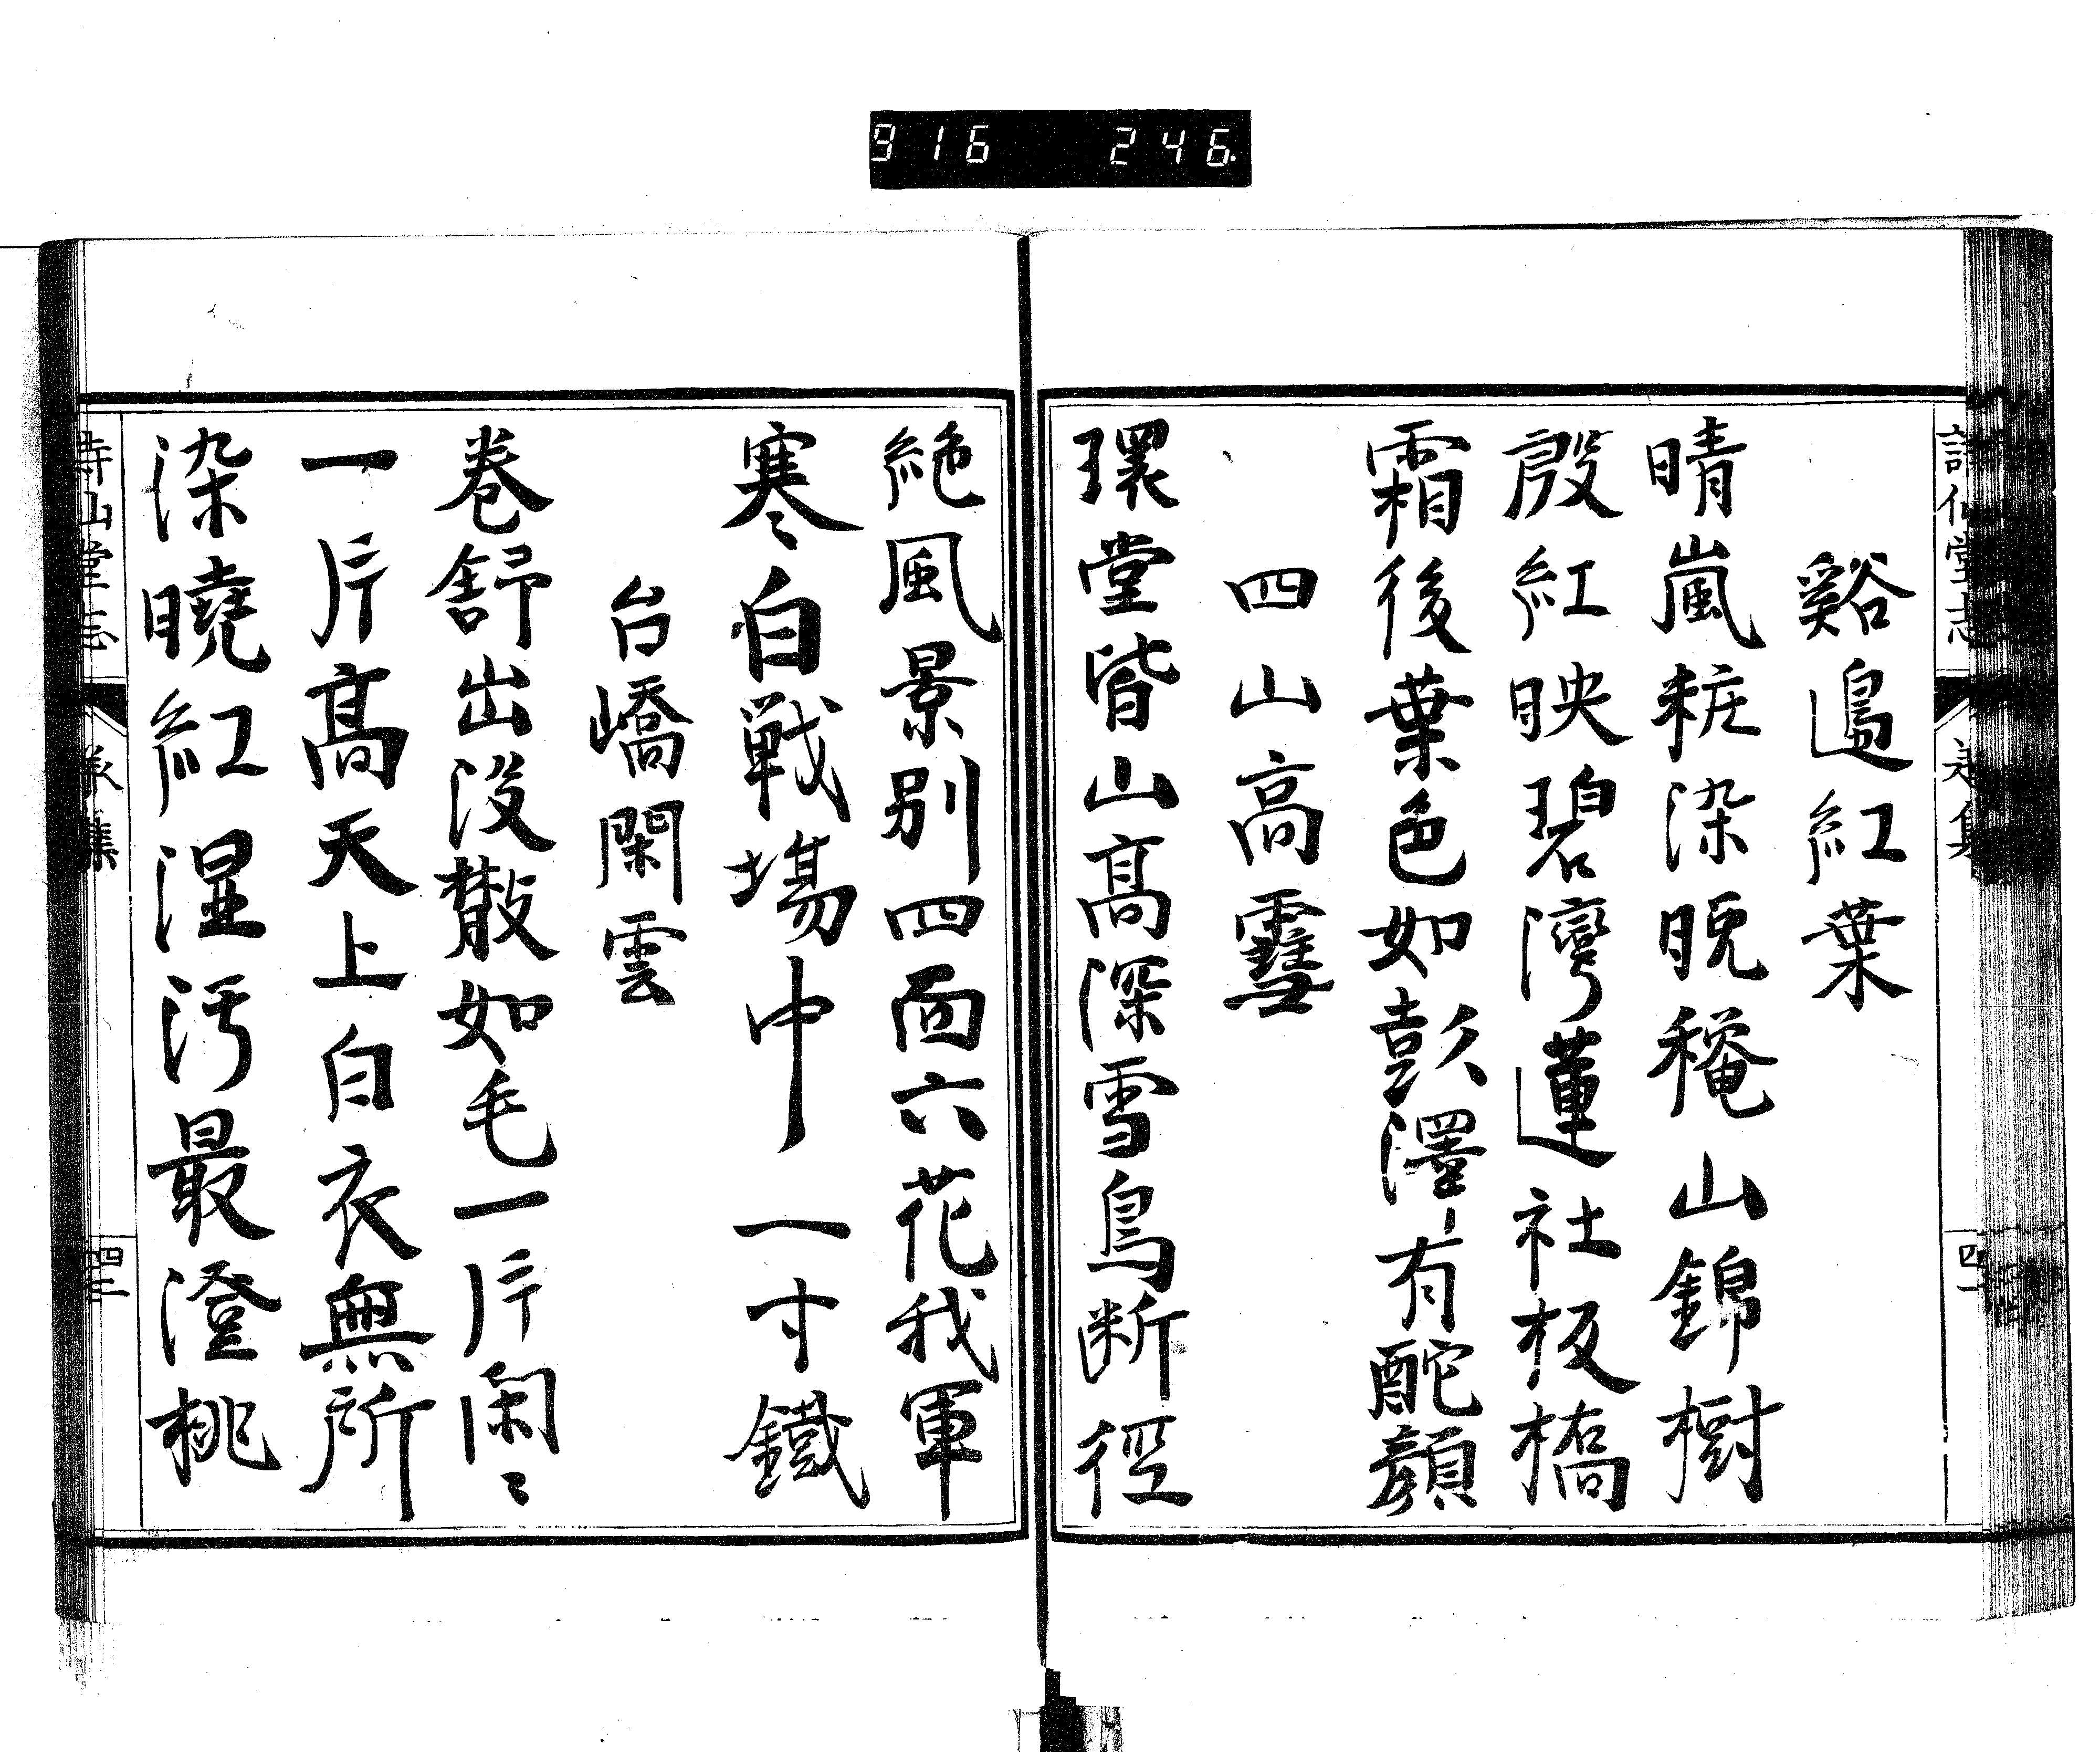 916 246
詩仙堂志
永集
四一
谿邉紅葉
晴嵐粧染晩穐山錦樹
殷紅映碧灣蓮社板橋
霜後葉色如彭澤有酡顔
四山高雪
環堂皆山高深雪鳥断徑
絶風景別四面六花我軍
寒々白戦場中一寸鐵
台嶠閑雲
巻舒出没散如毛一片闲々
一片高天上白衣無所
染曉紅湿汚最澄桃
四二